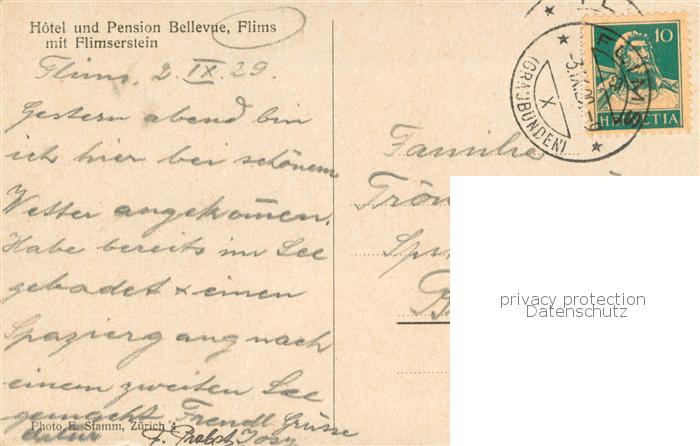 Hôtel und Pension Bellevue, Flims
mit Flimserstein
Flims, 2. IX. 29.
Gestern abend bin
ich hier bei schönem
Wetter angekom̄en.
Habe bereits im See
gebadet & einen
Spaziergang nach
einem zweiten See
gemacht Freundl Grüsse
Photo E. Stamm, Zürich 4
Josy
10
HELVETIA
FLIMS
(GRAUBÜNDEN)
X
Familie
Trön
Spr
B
privacy protection
Datenschutz